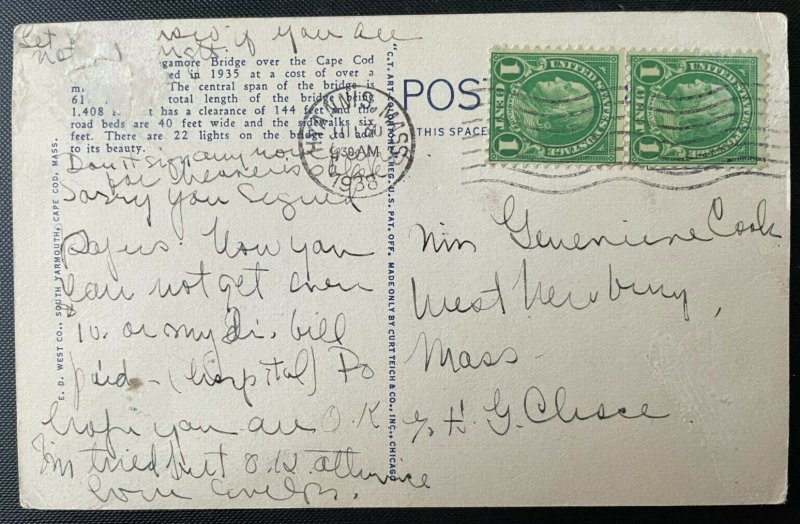 now if you are
Sagamore Bridge over the Cape Cod
ed in 1935 at a cost of over a
m The central span of the bridge is
61 total length of the bridge being
1.408 has a clearance of 144 feet and the
road beds are 40 wide and the sidewalks six
feet. There are 22 lights on the bridge to add
to its beauty.
Don't sign any
Sorry you signed
papers. Now you
can not get even
10. or my Di. bill
paid - (hospital) Do
hope you are O.K
I'm tired but O.K. otherwise
Love
E. D. WEST CO., SOUTH YARMOUTH, CAPE COD, MASS.
"C.T. ART-COLORTONE" REG. U.S. PAT. OFF. MADE ONLY BY CURT TEICH & CO., INC., CHICAGO
POST
THIS SPACE
HYANNIS MASS
930 AM
1938
UNITED STATES
1 CENT 1
UNITED STATES
1 CENT 1
Miss Genevieve Cook
West Newbury,
Mass.
℅ H. G. Chase